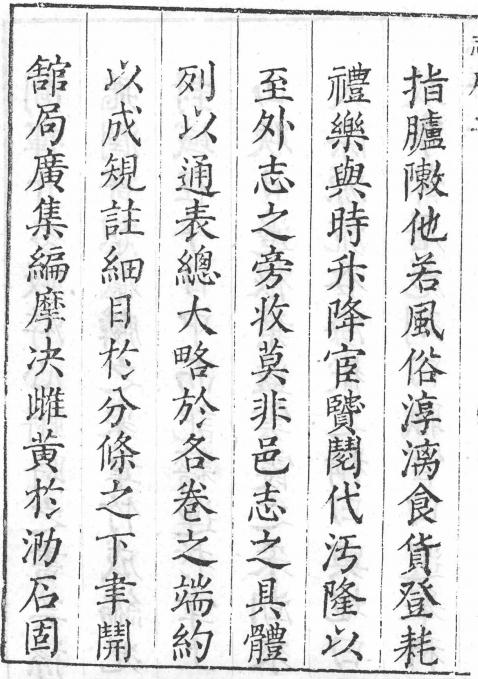 指臚敶他若風俗淳漓食貨登耗
禮樂與時升降宦贒閱代污隆以
至外志之旁收莫非邑志之具體
列以通表總大略於各卷之端約
以成規註細目於分條之下聿開
舘局廣集編摩决雌黄於泐石固